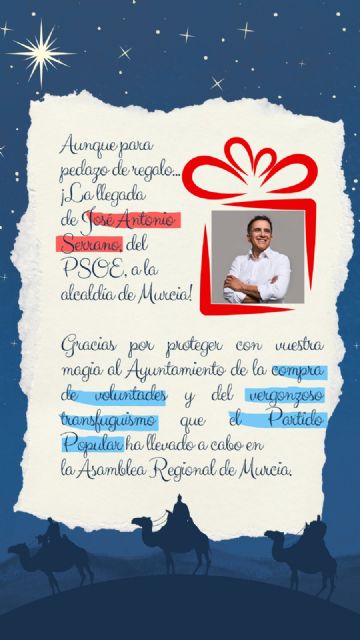 Aunque para
pedazo de regalo...
¡La llegada
de José Antonio
Serrano, del
PSOE, a la
alcaldía de Murcia!
Gracias por proteger con vuestra
magia al Ayuntamiento de la compra
de voluntades y del vergonzoso
transfuguismo que el Partido
Popular ha llevado a cabo en
la Asamblea Regional de Murcia.